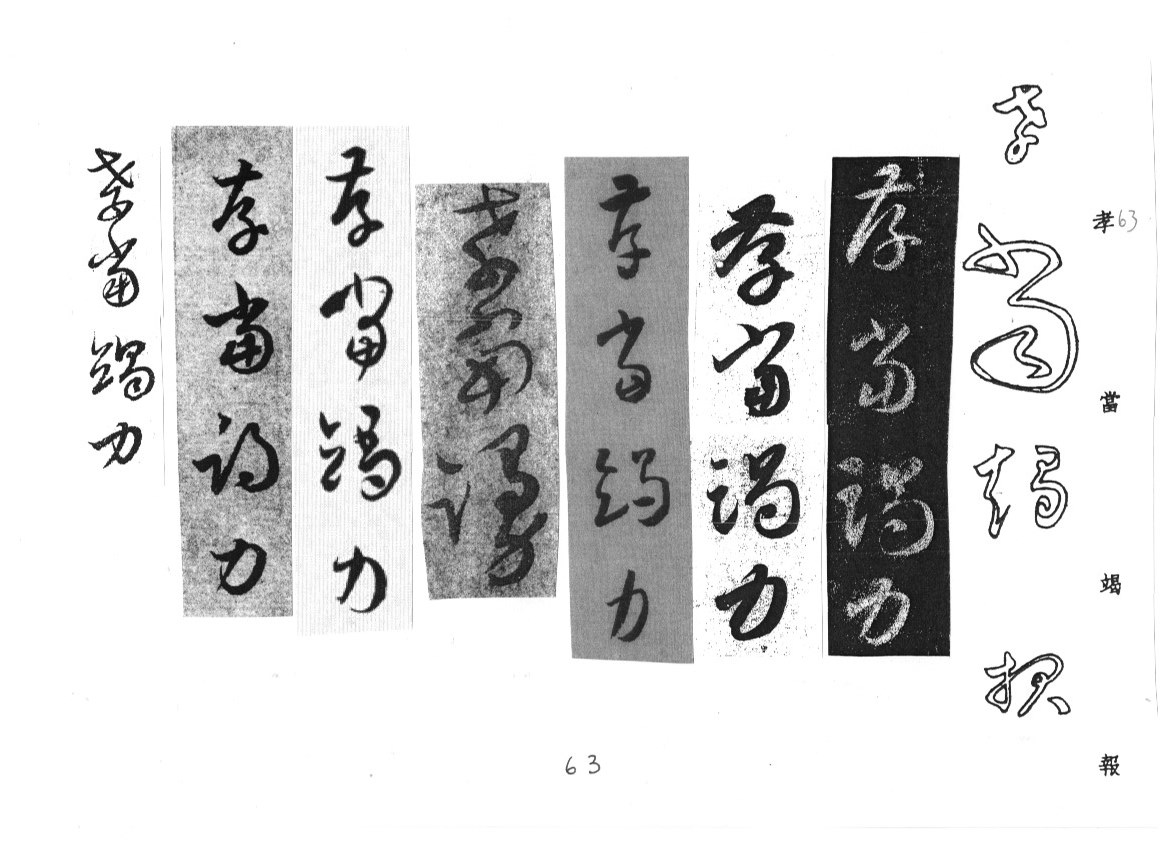 孝63當竭報
孝當竭報
孝當竭力
孝當竭力
孝當竭力
孝當竭力
孝當竭力
孝當竭力
孝當竭力
63